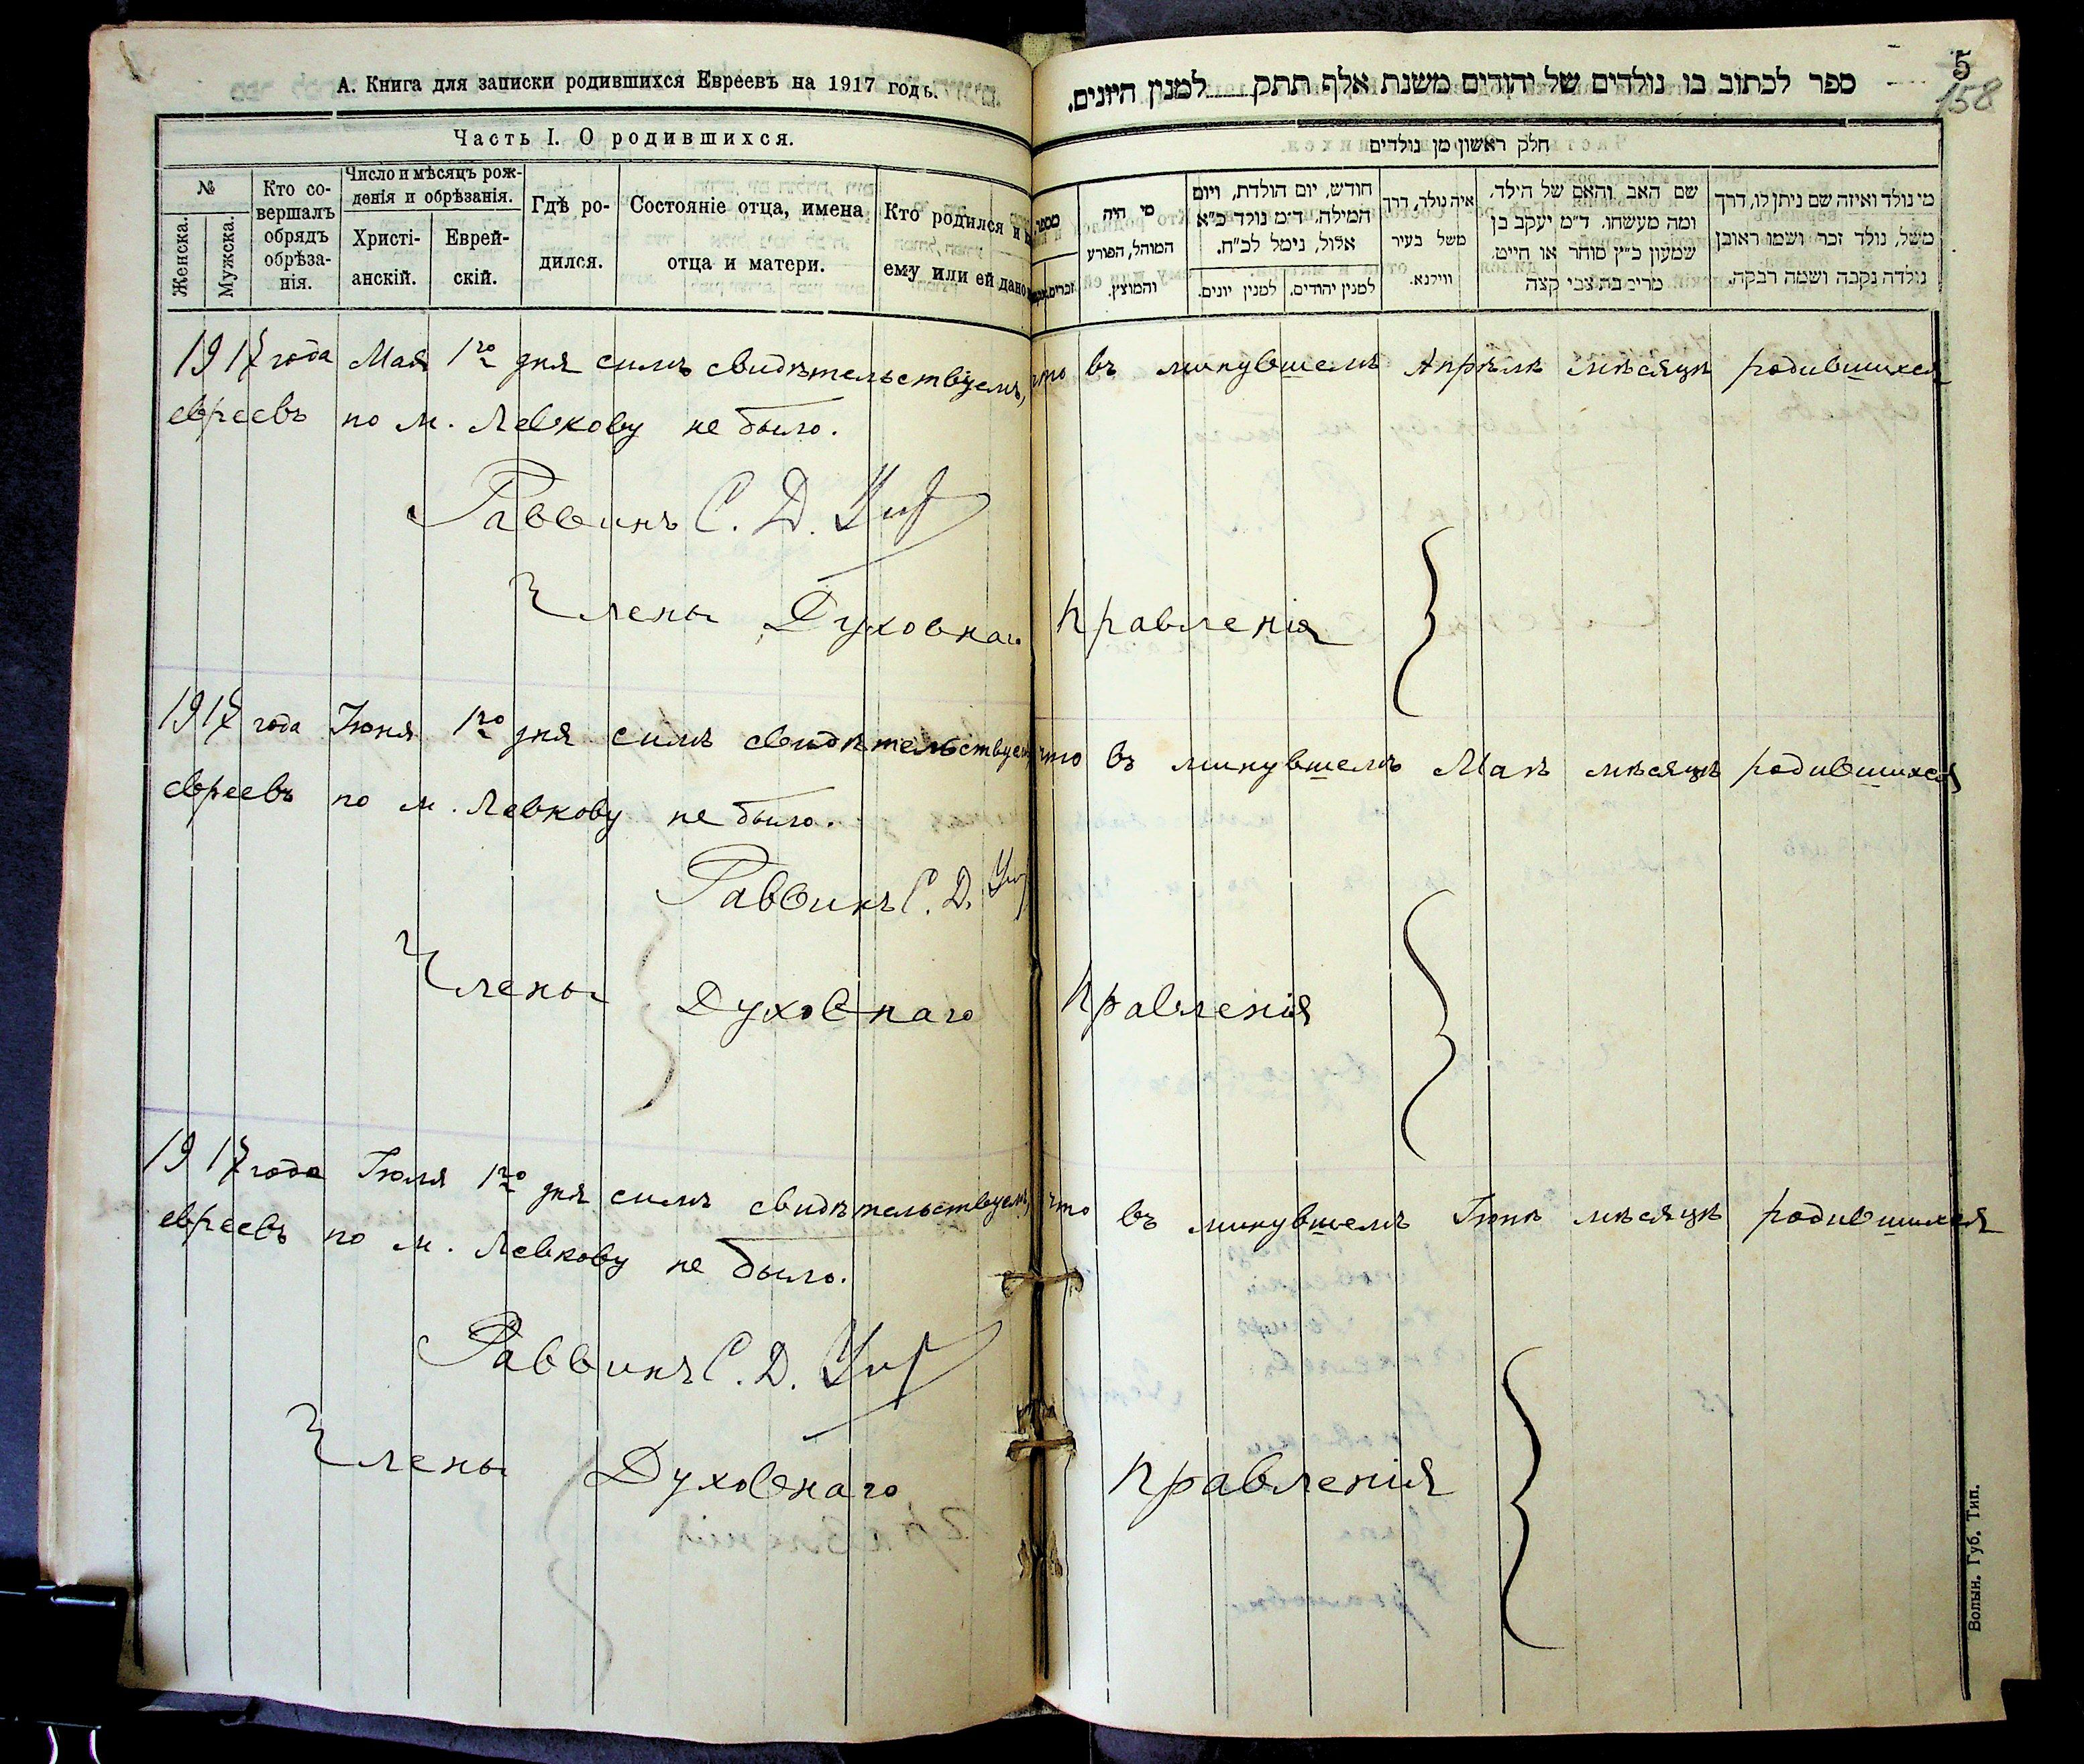 А. Книга для записки родившихся Евреевъ на 1917 годъ.
Часть I. О родившихся.
№
Женска.
Мужска.
Кто со-
вершалъ
обрядъ
обрѣза-
нія.
Число и мѣсяцъ рож-
денія и обрѣзанія.
Христі-
анскій.
Еврей-
скій.
Гдѣ ро-
дился.
Состояніе отца, имена
отца и матери.
Кто родился и
ему или ей дано
5
158
ספר לכתוב בו נולדים של יהודים משנת אלף תתק למנין היונים.
חלק ראשון מן נולדים
זכרים
מי היה
המוהל, הפורע
והמוצץ.
חודש, יום הולדת, ויום
המילה. ד״מ נולד כ״א
אלול, נימל לכ״ח.
למנין יונים.
למנין יהודים.
איה נולד, דרך
משל בעיר
ווילנא.
שם האב והאם של הילד.
ומה מעשהו. ד״מ יעקב בן
שמעון כ״ץ סוחר או חייט.
מרים בת צבי קצה
מי נולד ואיזה שם ניתן לו, דרך
משל, נולד זכר ושמו ראובן
נולדה נקבה ושמה רבקה.
1917 года Мая 1го дня симъ свидѣтельствуемъ, что въ минувшемъ Апрѣлѣ мѣсяцѣ родившихся
евреевъ по м. Левкову не было.
Раввинъ С. Д.
Члены Духовнаго Правленія
1917 года Іюня 1го дня симъ свидѣтельствуем что въ минувшемъ Маѣ мѣсяцѣ родившихся
евреевъ по м. Левкову не было.
Раввинъ С. Д.
Члены Духовнаго Правленія
1917 года Іюля 1го дня симъ свидѣтельствуемъ, что въ минувшемъ Іюнѣ мѣсяцѣ родившихся
евреевъ по м. Левкову не было.
Раввинъ С. Д.
Члены Духовнаго Правленія
Волын. Губ. Тип.